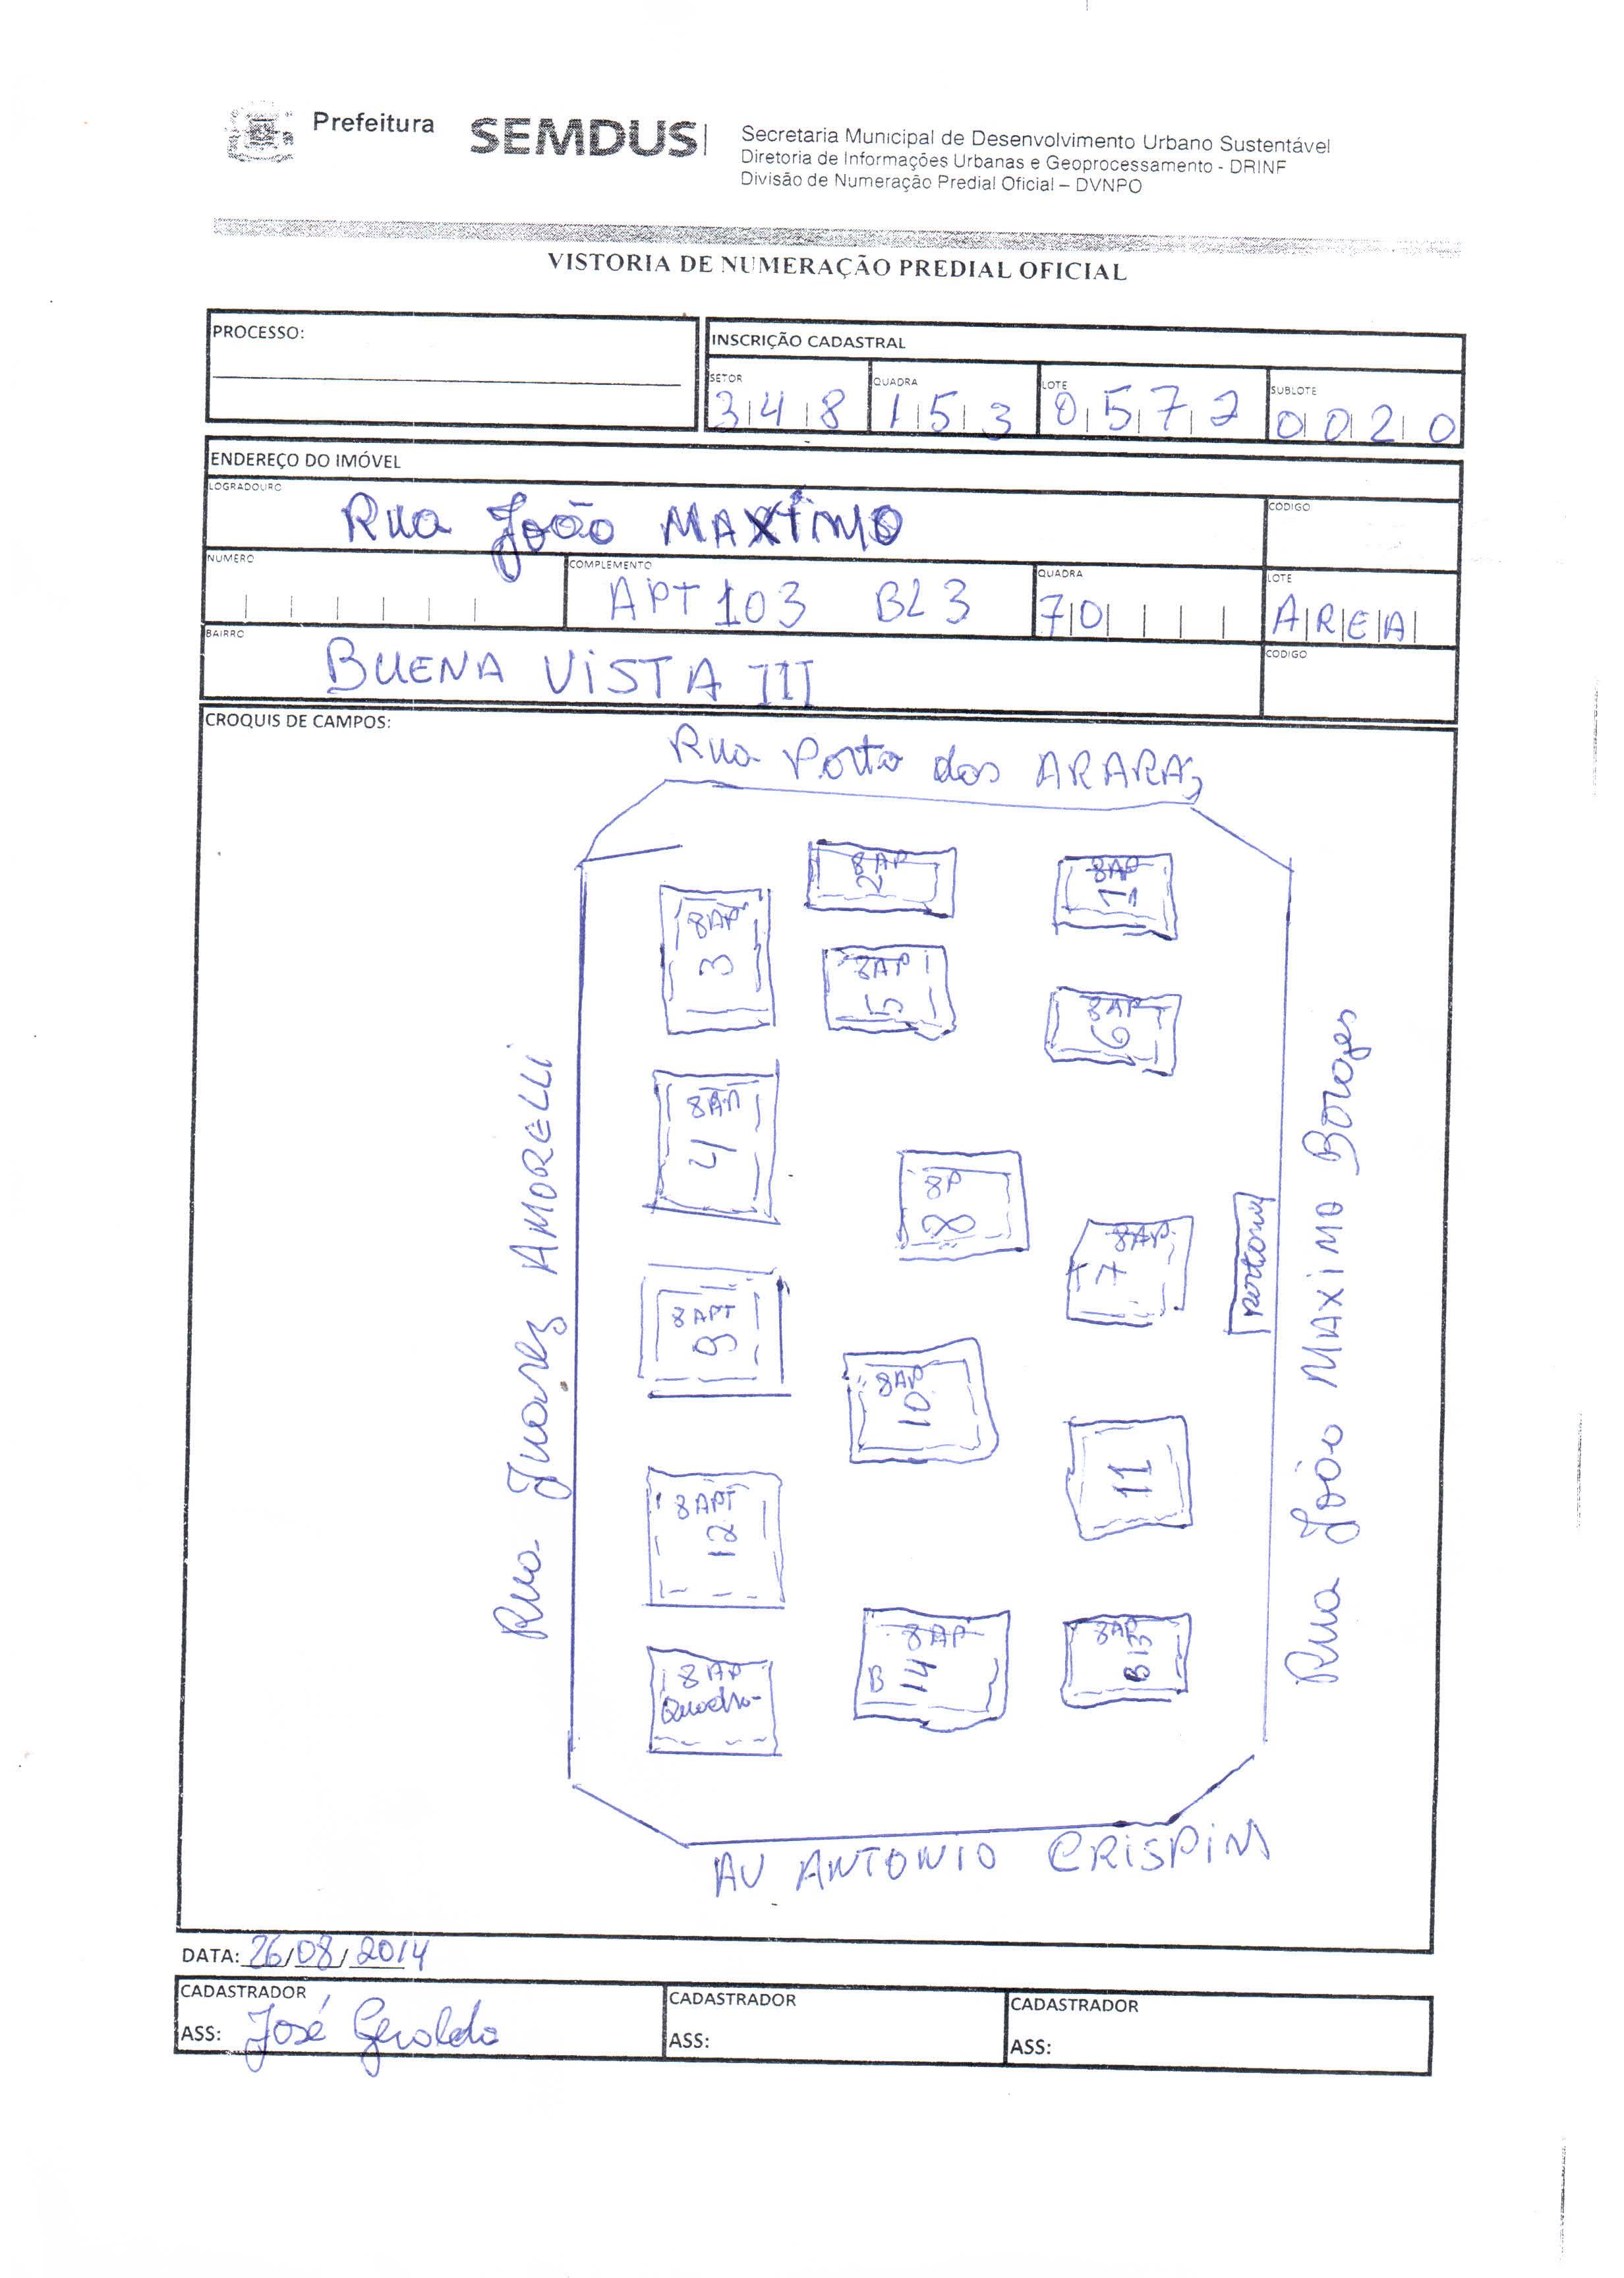 Prefeitura SEMDUS
Secretaria Municipal de Desenvolvimento Urbano Sustentável
Diretoria de Informações Urbanas e Geoprocessamento - DRINF
Divisão de Numeração Predial Oficial – DVNPO
VISTORIA DE NUMERAÇÃO PREDIAL OFICIAL
PROCESSO:
INSCRIÇÃO CADASTRAL
SETOR QUADRA LOTE SUBLOTE
348 153 0572 0020
ENDEREÇO DO IMÓVEL
LOGRADOURO CODIGO
Rua João MAXIMO
NUMERO COMPLEMENTO QUADRA LOTE
APT 103 BL 3 70 AREA
BAIRRO CODIGO
BUENA VISTA III
CROQUIS DE CAMPOS:
Rua Porto das ARARAS
8AP 2
8AP
8AP 3
8AP 5
8AP 6
4
8P 8
8AP 7
portaria
8APT 9
8AP 10
11
8APT 12
8AP B 14
8AP B 13
8AP Quadra
Rua Juarez AMORELLI
Rua João MAXIMO Borges
AV ANTONIO CRISPIM
DATA: 26/08/2014
CADASTRADOR CADASTRADOR CADASTRADOR
ASS: José Geraldo ASS: ASS: